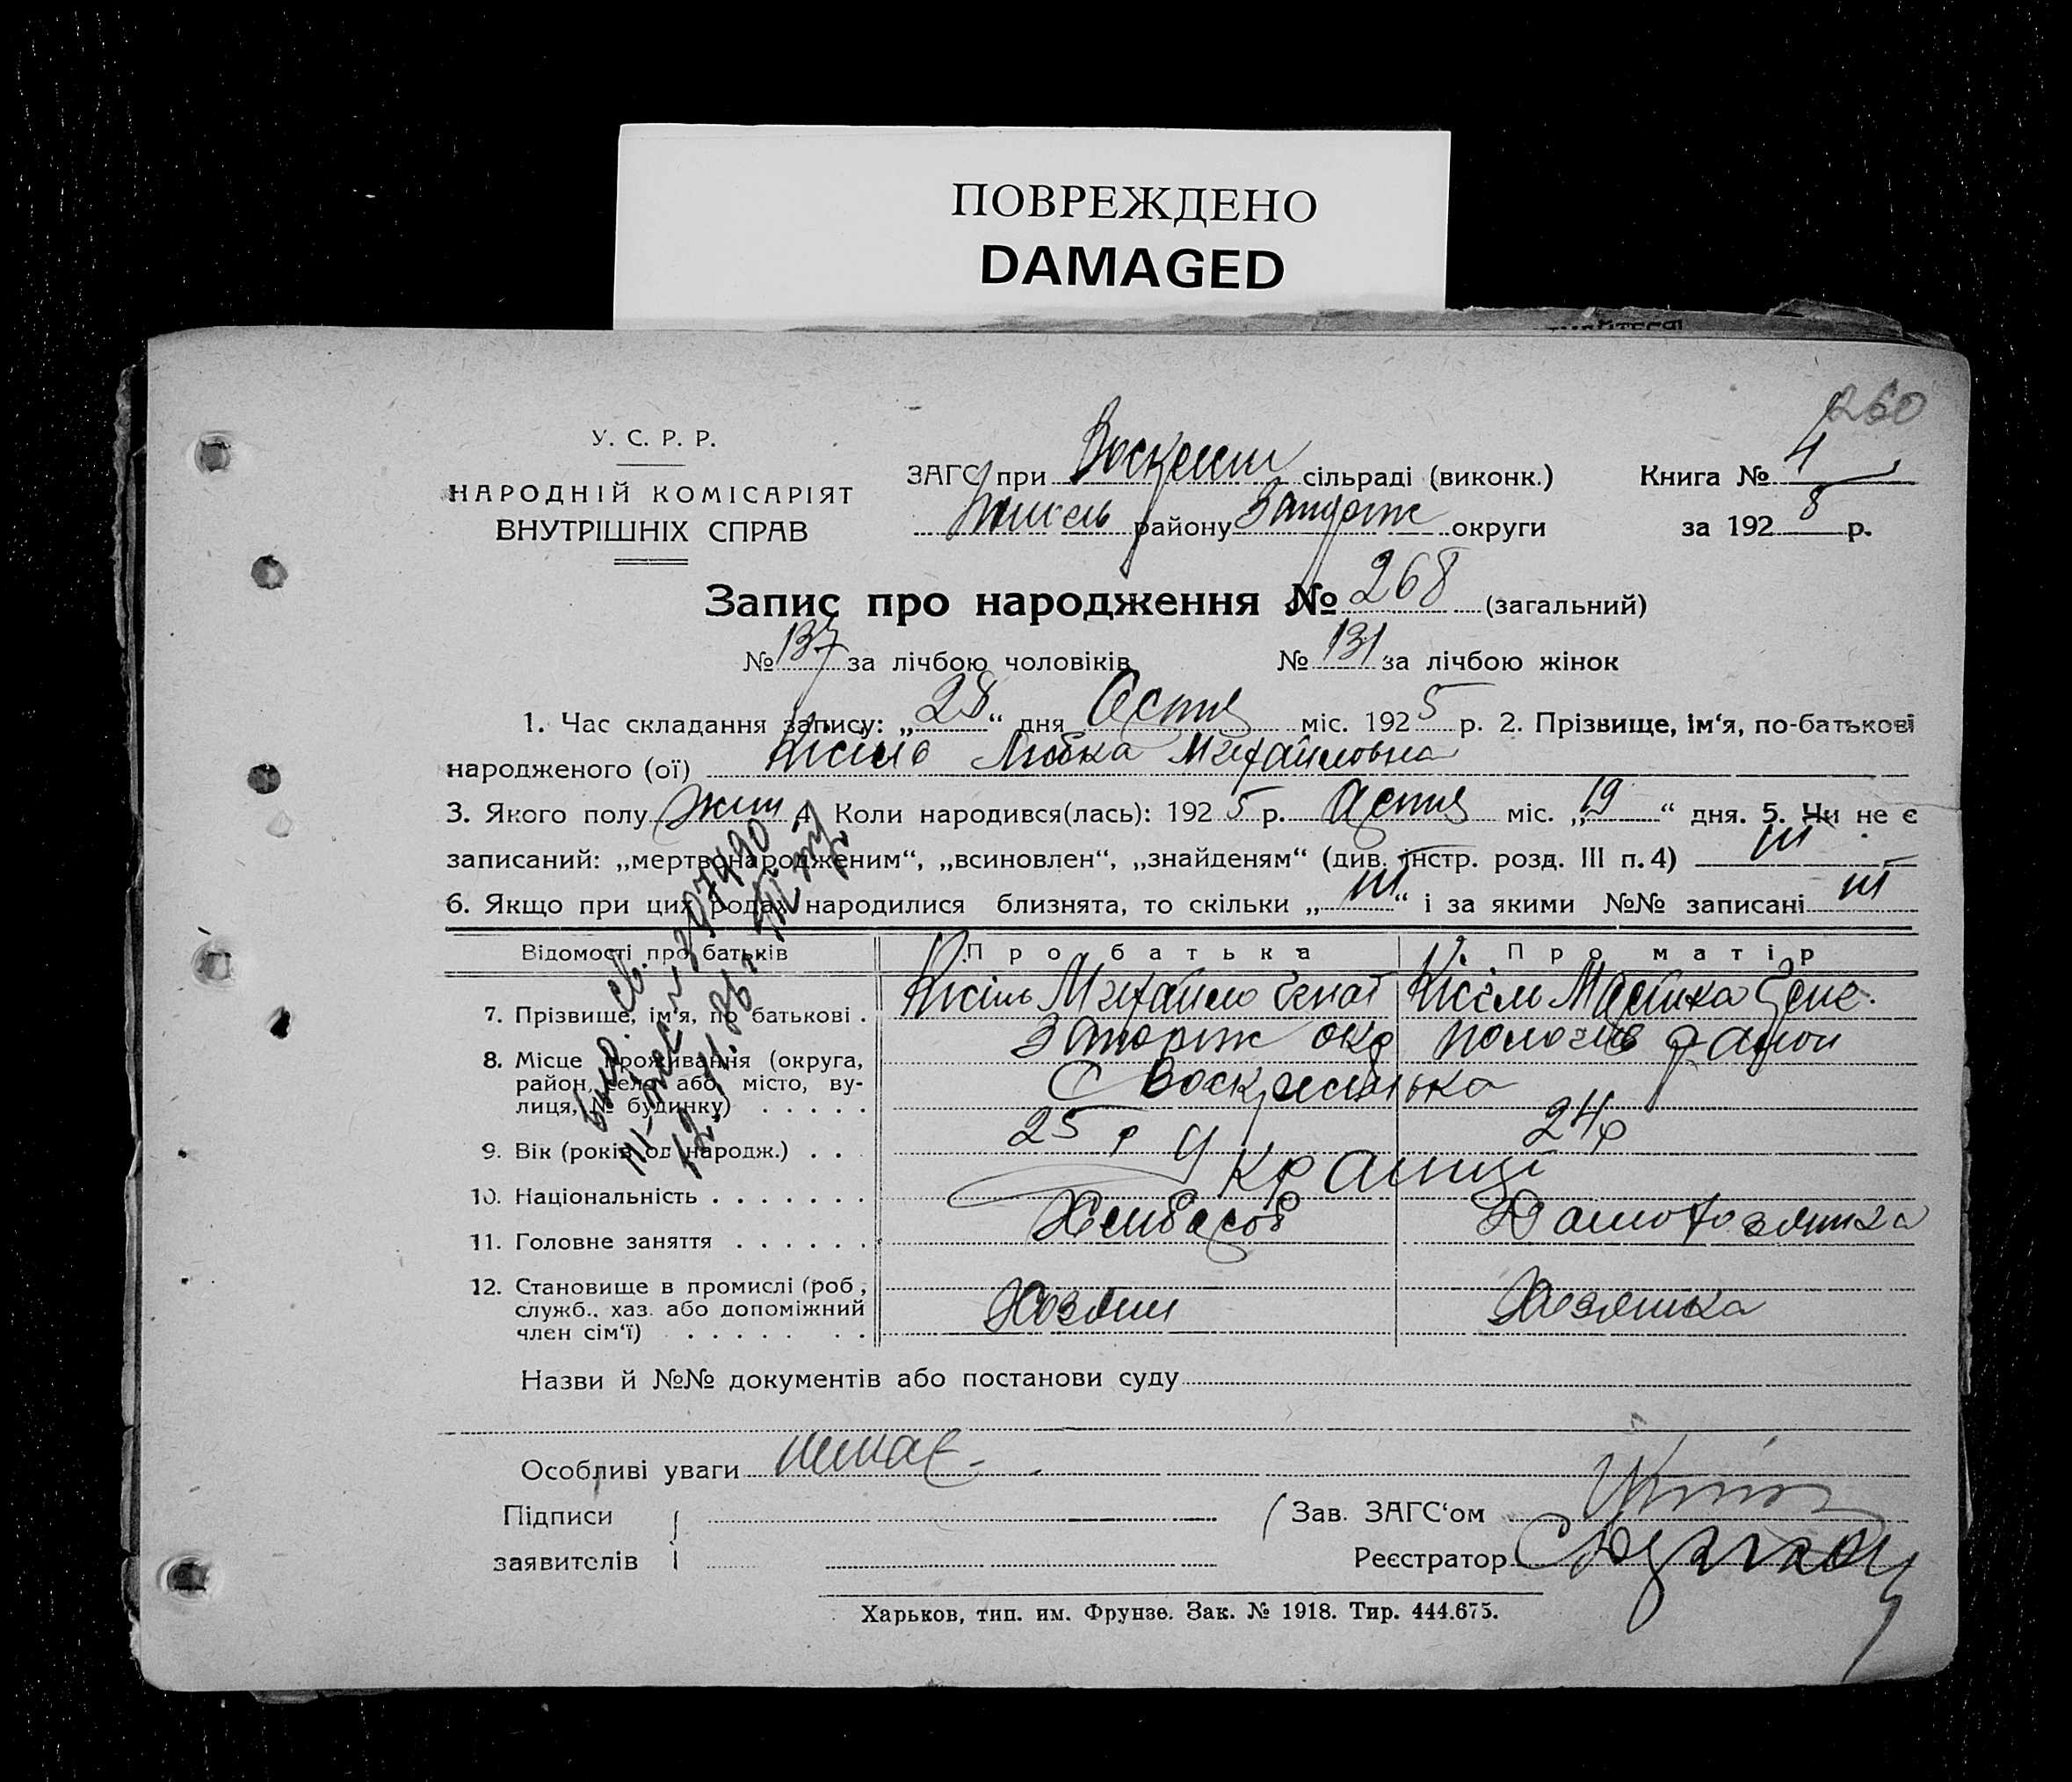 ПОВРЕЖДЕНО
DAMAGED
260
У. С. Р. Р.
НАРОДНІЙ КОМІСАРІЯТ
ВНУТРІШНІХ СПРАВ
ЗАГС при сільраді (виконк.)
району округи
Книга № 4
за 1928 р.
Запис про народження № 268 (загальний)
№ 137 за лічбою чоловіків № 131 за лічбою жінок
1. Час складання запису: „28“ дня міс. 1925 р. 2. Прізвище, ім‘я, по-батькові
народженого (ої) Кисіль Любка Михайловна
3. Якого полу жин 4. Коли народився(лась): 1925 р. міс. „19“ дня. 5. Чи не є
записаний: „мертвонародженим“, „всиновлен“, „знайденям“ (див. інстр. розд. III п. 4)
6. Якщо при цих родах народилися близнята, то скільки „ “ і за якими №№ записані
Відомості про батьків Про батька Про матір
7. Прізвище, ім‘я, по батькові . Кисіль Михайло Кисіль
8. Місце проживання (округа, район, село або місто, вулиця, № будинку) окр район
с Воскресенька
9. Вік (років од народж.) . . . 25 р 24 р
10. Національність . . . . . . . Українці
11. Головне заняття . . . . . . Хлибороб Домохозяйка
12. Становище в промислі (роб.,
служб., хаз. або допоміжний
член сім‘ї) . . . . . . . Хозяин Хозяйка
Назви й №№ документів або постанови суду
Особливі уваги немає
Підписи
заявителів
Зав. ЗАГС‘ом
Реєстратор
Харьков, тип. им. Фрунзе. Зак. № 1918. Тир. 444.675.